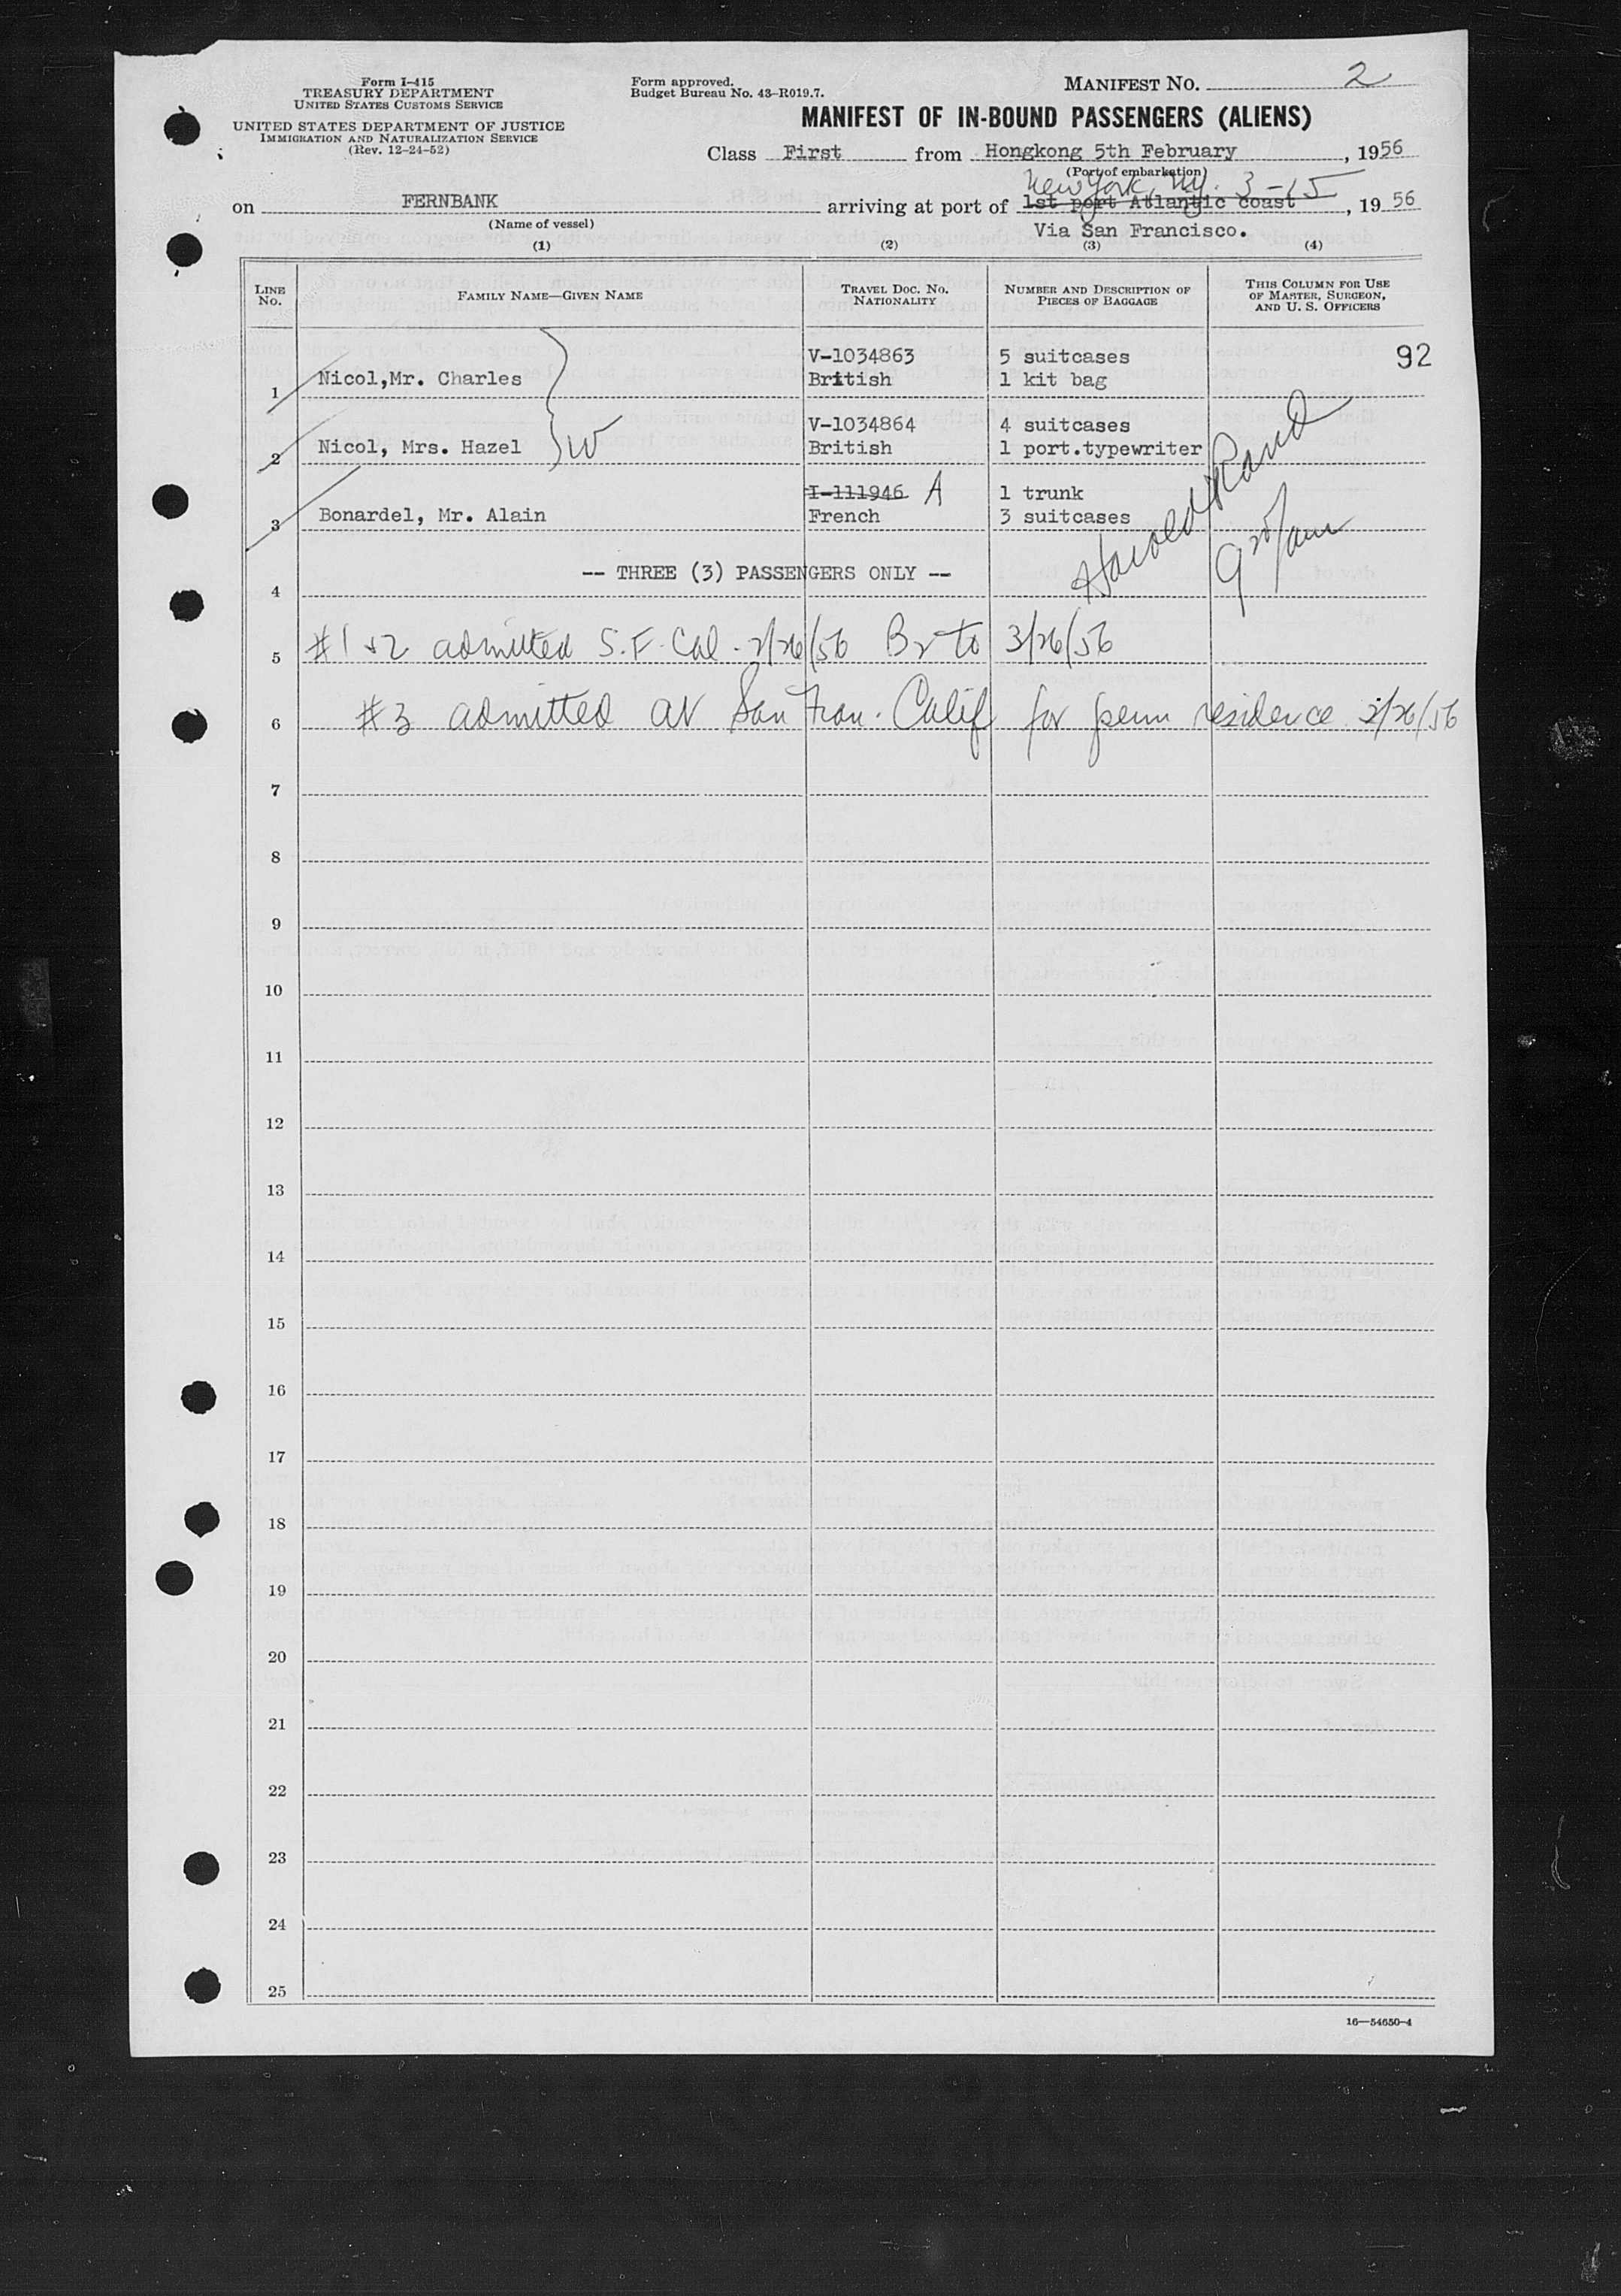 Form I-415
TREASURY DEPARTMENT
UNITED STATES CUSTOMS SERVICE
UNITED STATES DEPARTMENT OF JUSTICE
IMMIGRATION AND NATURALIZATION SERVICE
(Rev. 12-24-52)
Form approved.
Budget Bureau No. 43-R019.7.
MANIFEST NO. 2
MANIFEST OF IN-BOUND PASSENGERS (ALIENS)
Class First from Hongkong 5th February, 1956
(Port of embarkation)
New York, NY. 3-15
on FERNBANK arriving at port of 1st port Atlantic coast, 1956
(Name of vessel)
Via San Francisco.
(1) (2) (3) (4)
LINE NO. FAMILY NAME—GIVEN NAME TRAVEL DOC. NO. NATIONALITY NUMBER AND DESCRIPTION OF PIECES OF BAGGAGE THIS COLUMN FOR USE OF MASTER, SURGEON, AND U. S. OFFICERS
92
V-1034863 5 suitcases
1 Nicol,Mr. Charles British 1 kit bag
V-1034864 4 suitcases
2 Nicol, Mrs. Hazel W British 1 port.typewriter
I-111946 A 1 trunk
3 Bonardel, Mr. Alain French 3 suitcases
Harold Rand
-- THREE (3) PASSENGERS ONLY --
4
5 #1 & 2 admitted S.F. Cal. 2/26/56 B2 to 3/26/56
6 #3 admitted at San Fran. Calif for perm residence 2/26/56
7
8
9
10
11
12
13
14
15
16
17
18
19
20
21
22
23
24
25
16—54650-4